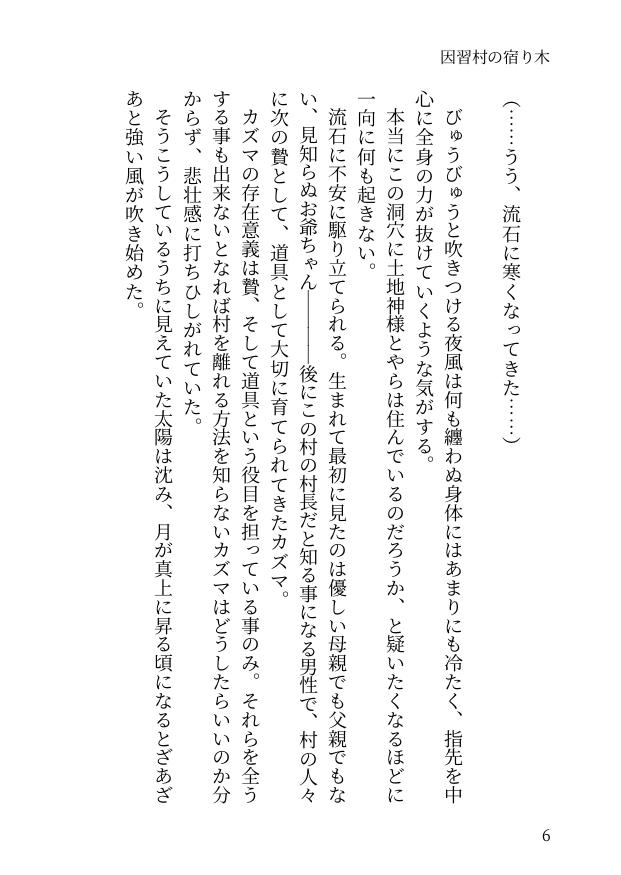 因習村の宿り木
(……うう、流石に寒くなってきた……)
びゅうびゅうと吹きつける夜風は何も纏わぬ身体にはあまりにも冷たく、指先を中
心に全身の力が抜けていくような気がする。
本当にこの洞穴に土地神様とやらは住んでいるのだろうか、と疑いたくなるほどに
一向に何も起きない。
流石に不安に駆り立てられる。生まれて最初に見たのは優しい母親でも父親でもな
い、見知らぬお爺ちゃん――――後にこの村の村長だと知る事になる男性で、村の人々
に次の贄として、道具として大切に育てられてきたカズマ。
カズマの存在意義は贄、そして道具という役目を担っている事のみ。それらを全う
する事も出来ないとなれば村を離れる方法を知らないカズマはどうしたらいいのか分
からず、悲壮感に打ちひしがれていた。
そうこうしているうちに見えていた太陽は沈み、月が真上に昇る頃になるとざあざ
あと強い風が吹き始めた。
6